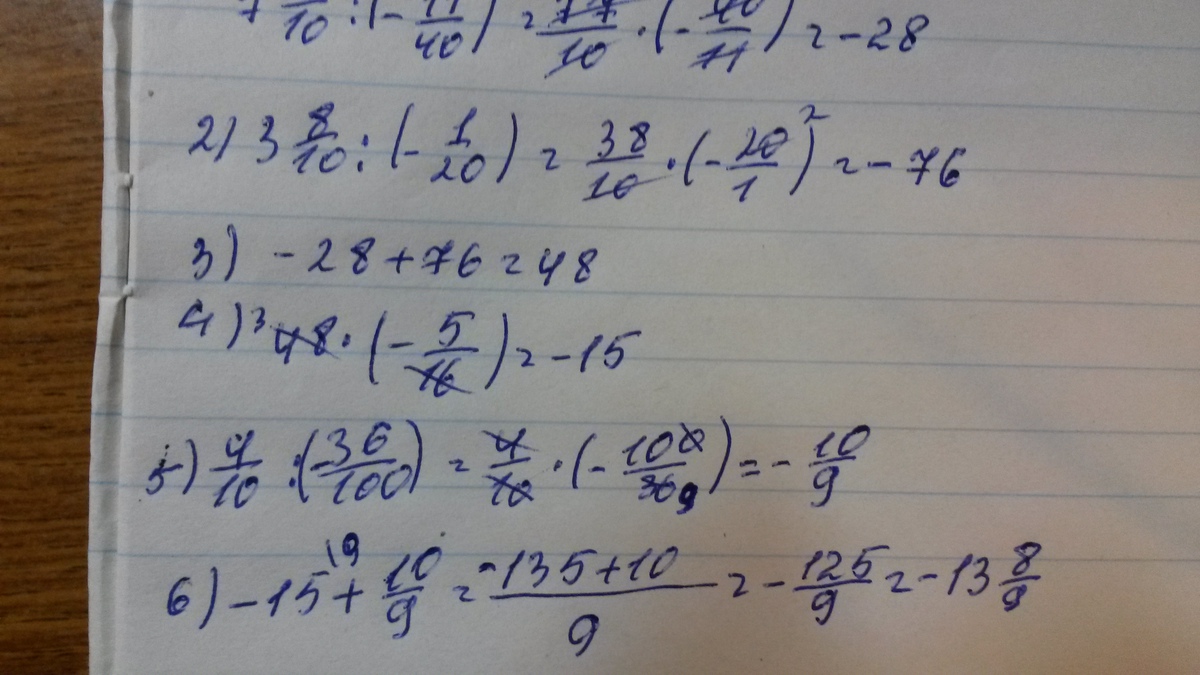 7 /10 : (- 11/40) = 77/10 · (- 40/11) = -28
2) 3 8/10 : (- 1/20) = 38/10 · (- 20/1)² = -76
3) -28+76=48
4) ³48 · (- 5/16) = -15
5) 4/10 : (- 36/100) = 4/10 · (- 100/36 9) = - 10/9
6) -15\9 + 10/9 = -135+10/9 = - 125/9 = -13 8/9